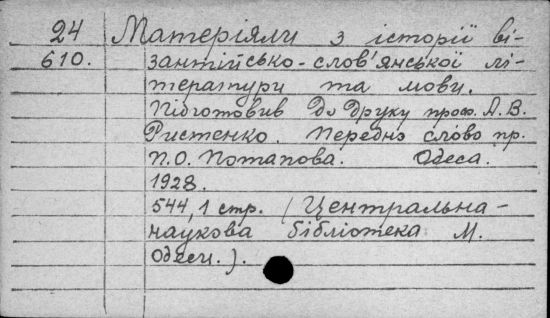 24 Матеріяли з історії ві-
610. зантійсько-слов'янської лі-
тератури та мови.
Підготовив До Друку проф. А. В.
Ристенко. Переднэ слово пр.
П. О. Потапова. Одеса.
1928.
544, 1 стр. (Центральна-
наукова бібліотека М.
Одеси.).